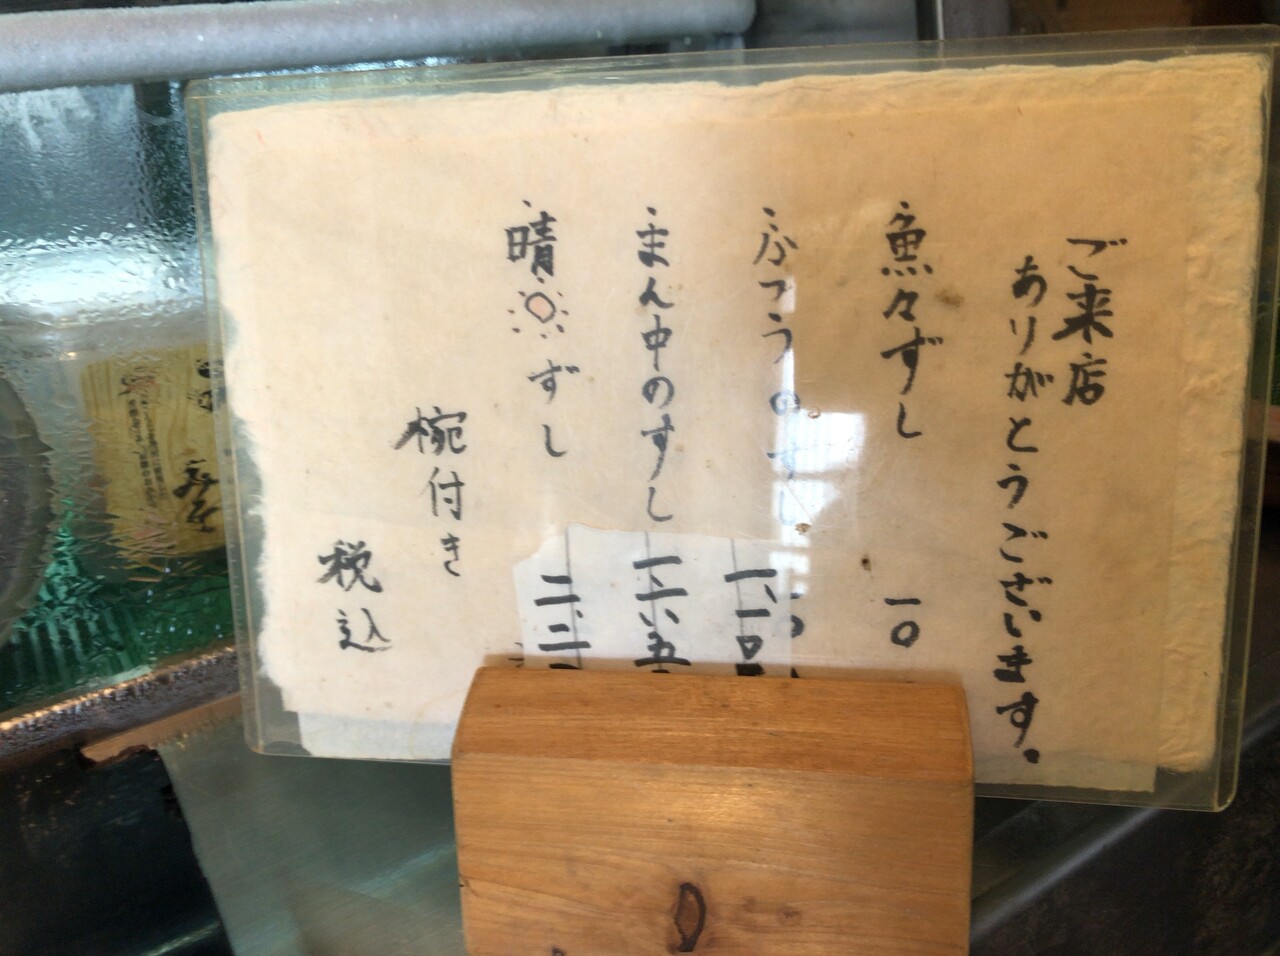 ご来店
ありがとうございます。
魚々ずし 一〇
ふつうのすし 一、一〇
まん中のすし 一、六五
晴ずし 二、二
椀付き
税込
みそ